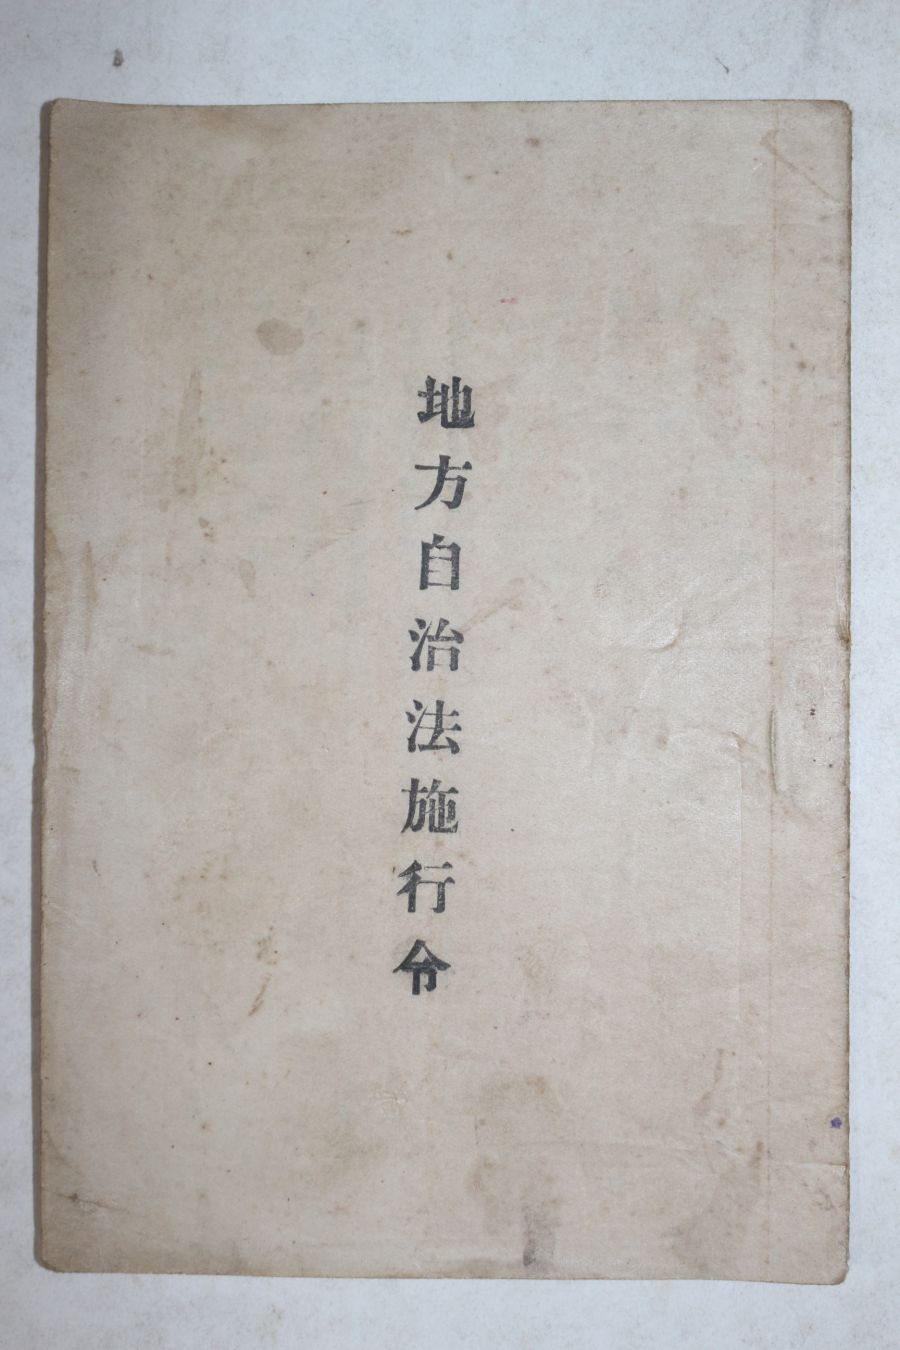 地方自治法施行令